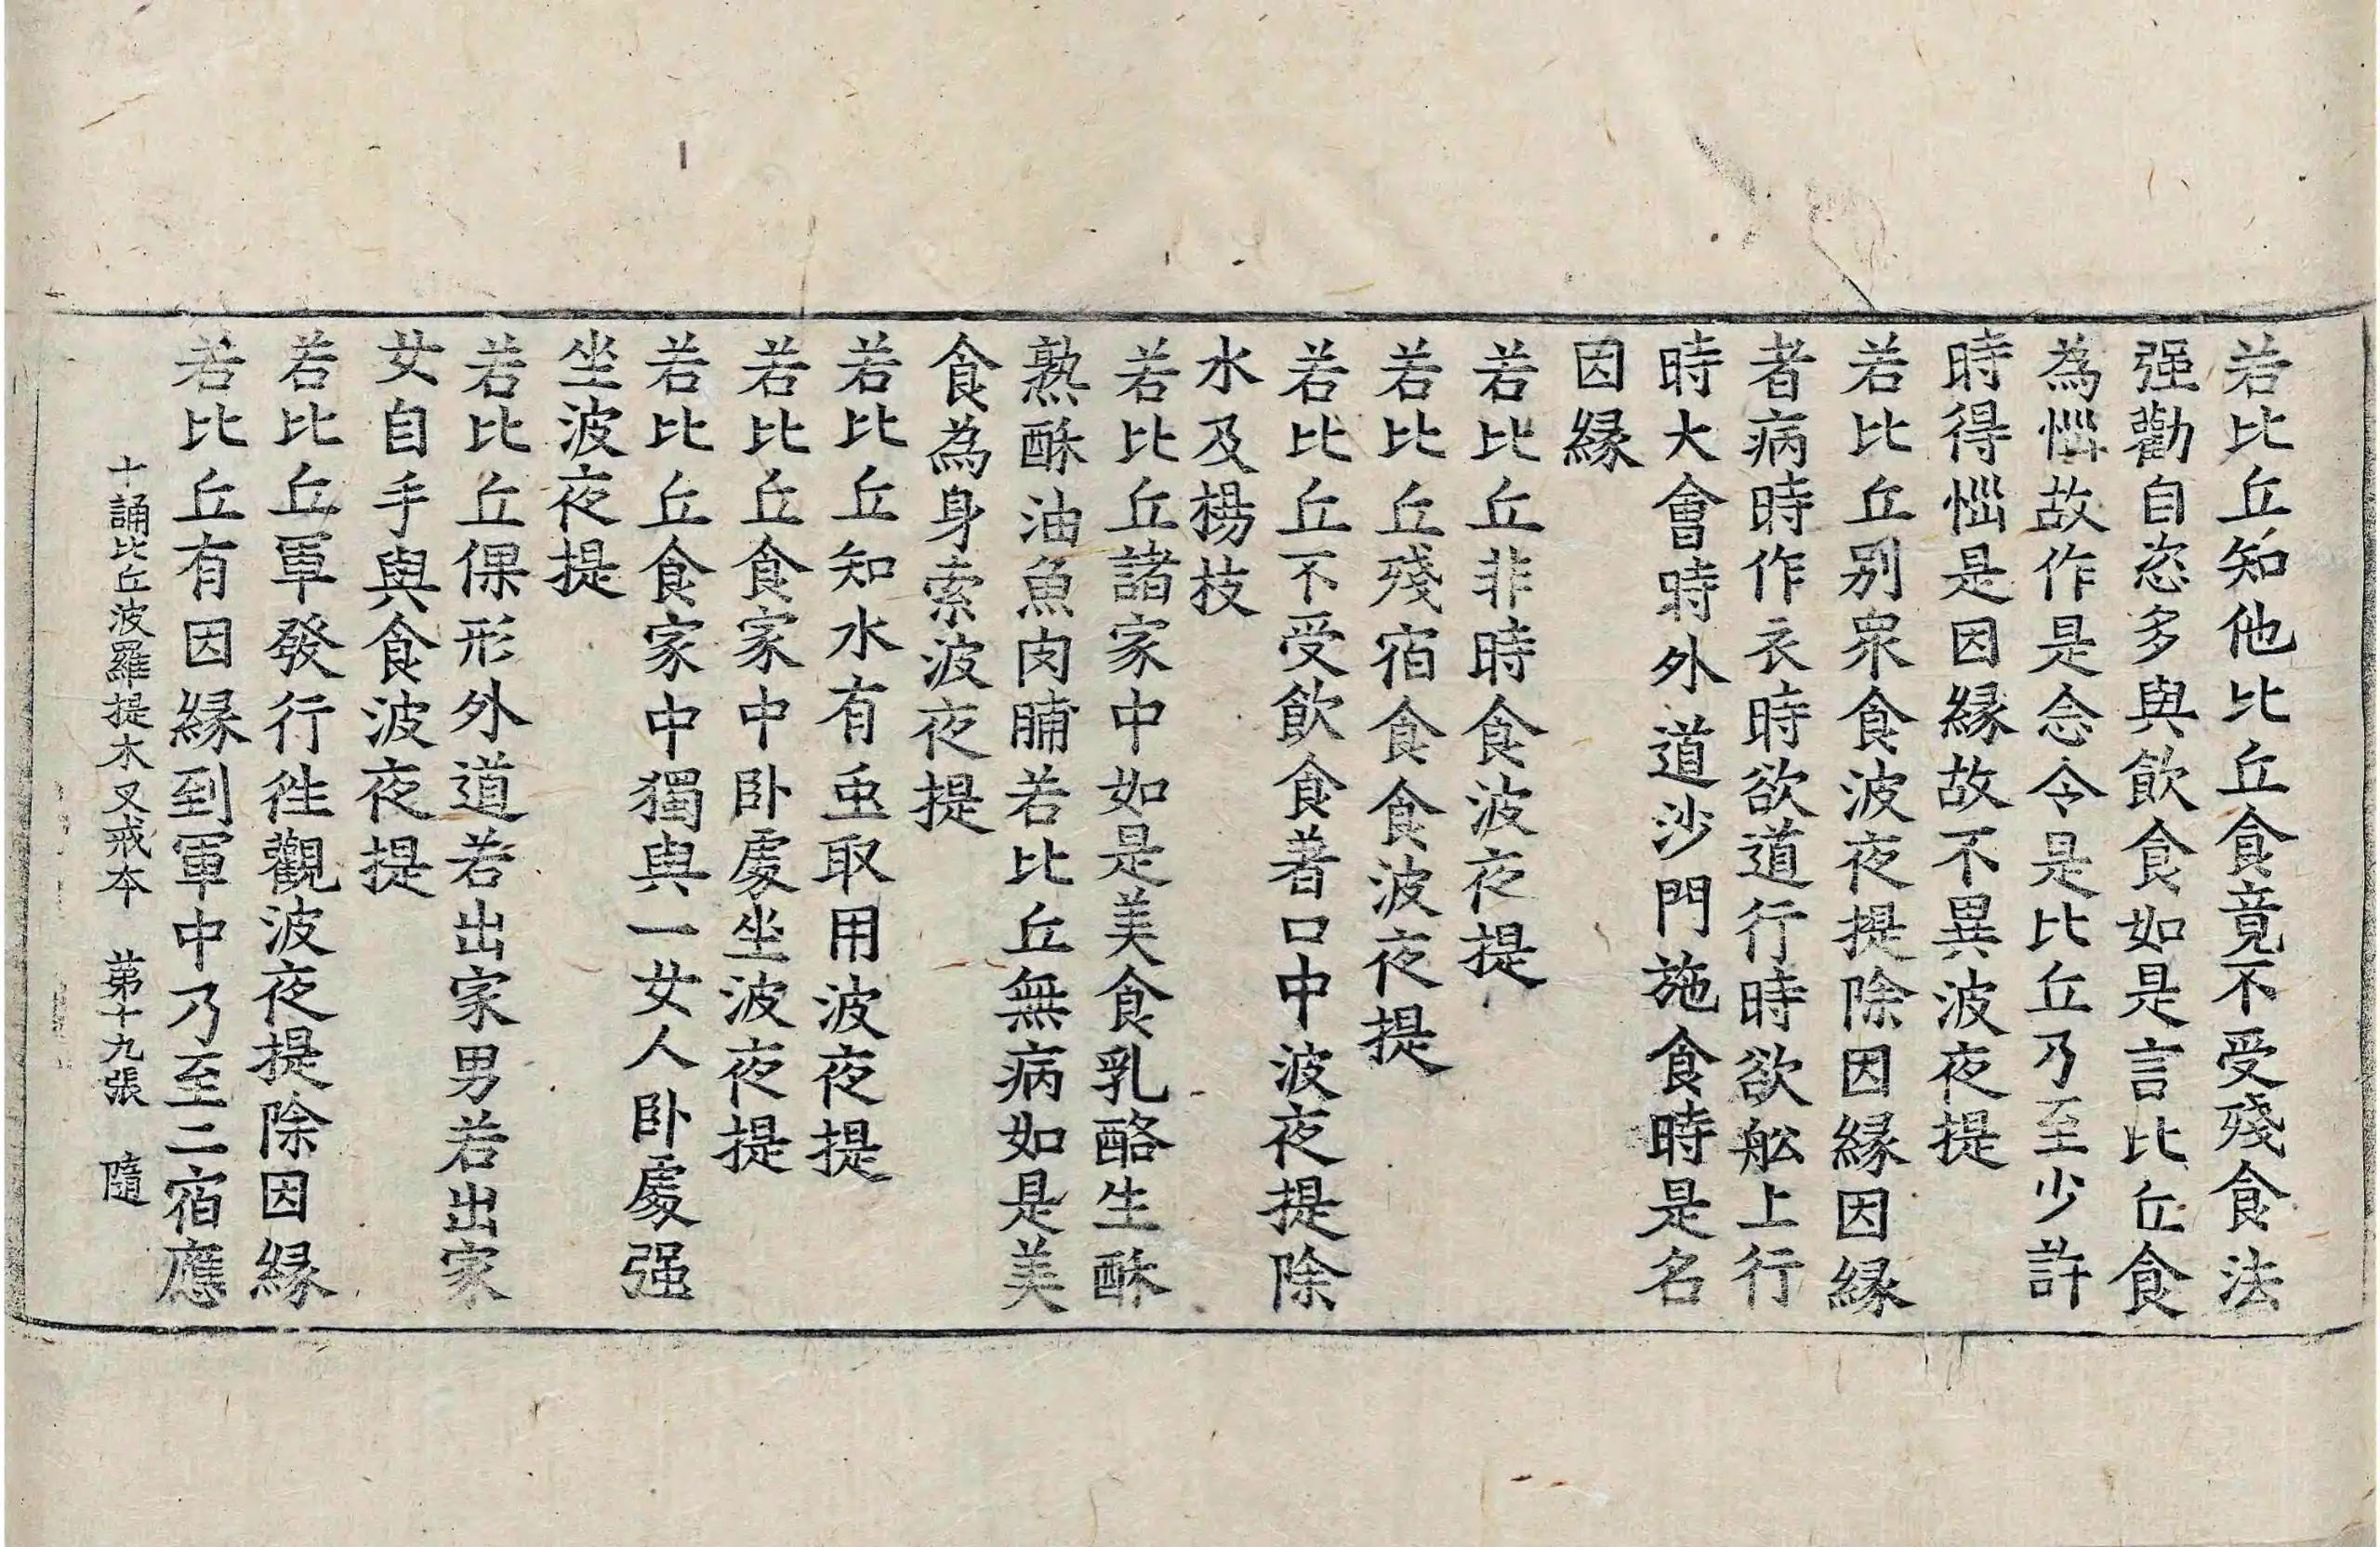 若比丘知他比丘食竟不受殘食法
强勸自恣多與飲食如是言比丘食
為惱故作是念令是比丘乃至少許
時得惱是因緣故不異波夜提
若比丘別衆食波夜提除因緣因緣
者病時作衣時欲道行時欲舩上行
時大會時外道沙門施食時是名
因緣
若比丘非時食波夜提
若比丘殘宿食食波夜提
若比丘不受飲食著口中波夜提除
水及楊枝
若比丘諸家中如是美食乳酪生酥
熟酥油魚肉脯若比丘無病如是美
食為身索波夜提
若比丘知水有虫取用波夜提
若比丘食家中卧處坐波夜提
若比丘食家中獨與一女人卧處强
坐波夜提
若比丘倮形外道若出家男若出家
女自手與食波夜提
若比丘軍發行徃觀波夜提除因緣
若比丘有因緣到軍中乃至二宿應
十誦比丘波羅提木叉戒本　苐十九張　隨